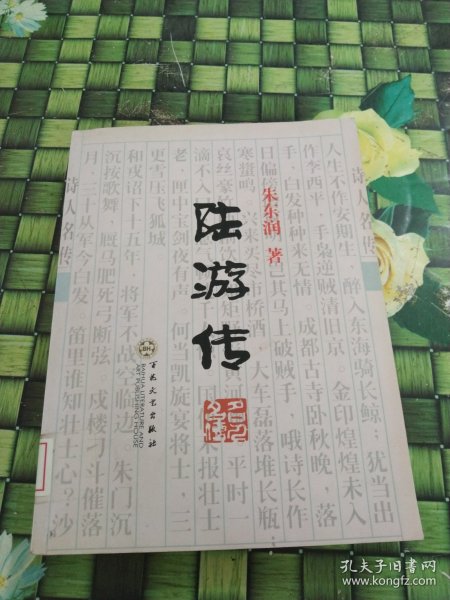 诗人名传
人生不作安期生，醉入东海骑长鲸；犹当出
作李西平，手枭逆贼清旧京。金印煌煌未入
手，白发种种来无情。成都古寺卧秋晚，落
日偏
其马上破贼手，哦诗长作
寒螀鸣。兴来买尽市桥酒，大车磊落堆长瓶；
哀丝豪
河
平时一
滴不入
千
国
未报壮士
老，匣中宝剑夜有声。何当凯旋宴将士，三
更雪压飞狐城。
和戎诏下十五年，将军不
空临边。朱门沉
沉按歌舞，厩马肥死弓断弦。戍楼刁斗催落
月，三
从军今白发。笛里谁知壮士心？沙
诗人名传
朱东润 著
陆游传
名传
BH
百花文艺出版社
BAIHUA LITERATURE AND
ART PUBLISHING HOUSE
孔夫子旧书网
www.kongfz.com